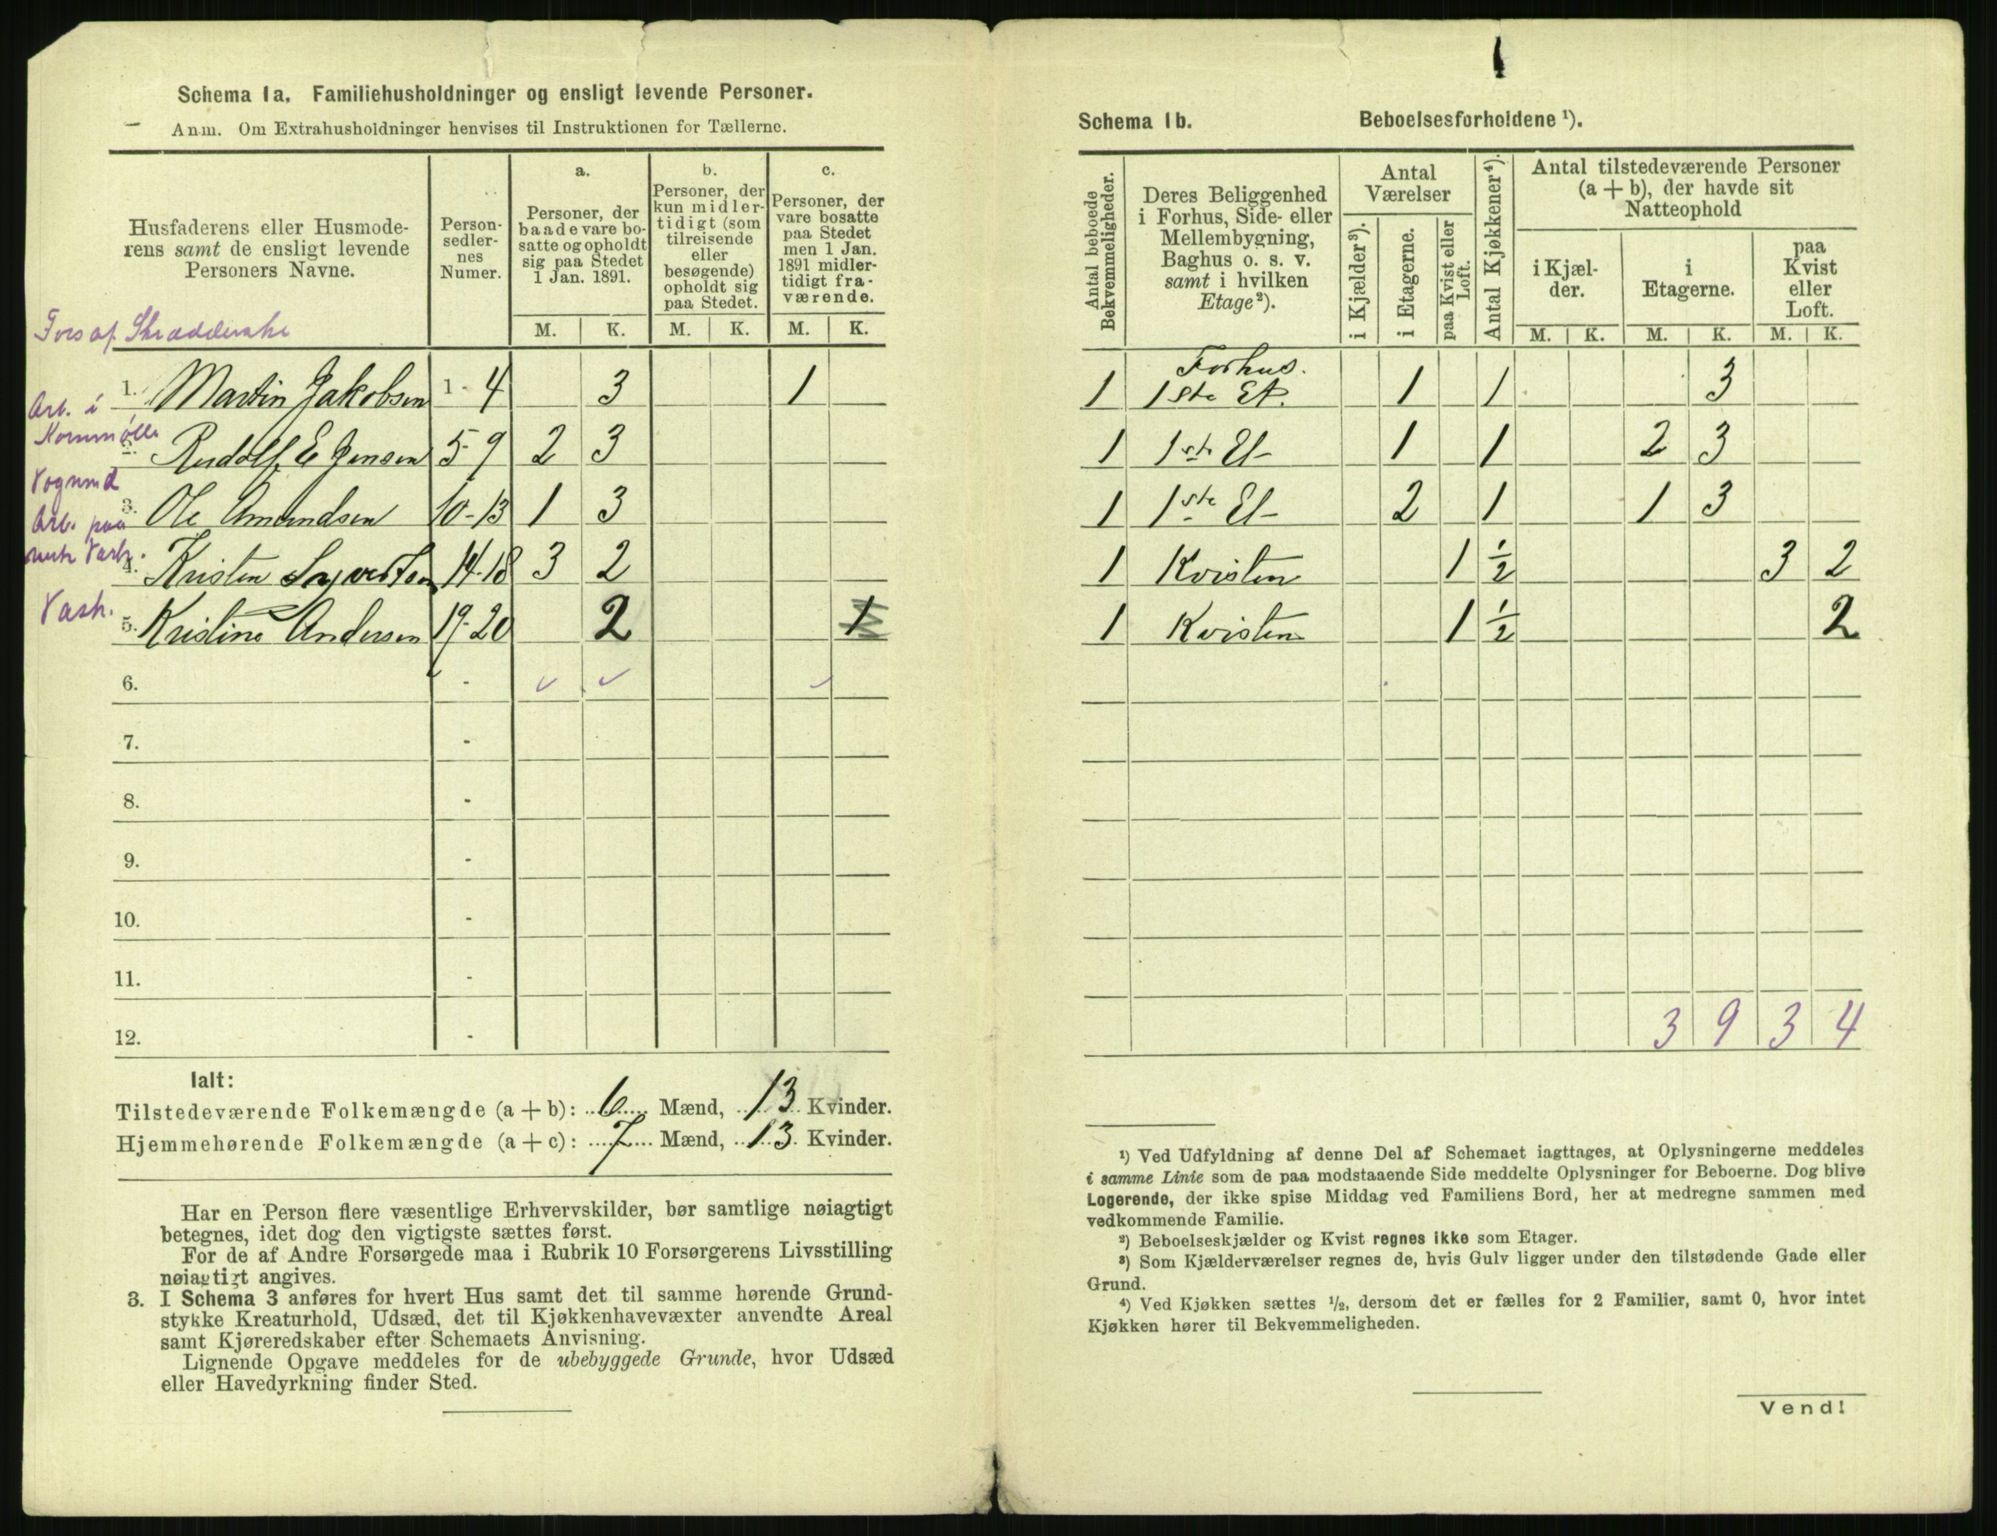 Schema 1a. Familiehusholdninger og ensligt levende Personer.
Anm. Om Extrahusholdninger henvises til Instruktionen for Tællerne.
Husfaderens eller Husmode-
rens samt de ensligt levende
Personers Navne.
Person-
sedler-
nes
Numer.
a.
Personer, der
baade vare bo-
satte og opholdt
sig paa Stedet
1 Jan. 1891.
b.
Personer, der
kun midler-
tidigt (som
tilreisende
eller
besøgende)
opholdt sig
paa Stedet.
c.
Personer, der
vare bosatte
paa Stedet
men 1 Jan.
1891 midler-
tidigt fra-
værende.
M. K. M. K. M. K.
Fors af
1. Martin Jakobsen 1 - 4 3 1
Arb. i
Kornmølle
2. Rudolf E Jensen 5-9 2 3
Vognmd
3. Ole Amundsen 10-13 1 3
Arb. paa
mek Værk.
4. Kristen Syvertsen 14-18 3 2
Vask.
5. Kristine Andersen 19-20 2 1
6. -
7. -
8. -
9. -
10. -
11. -
12. -
Ialt:
Tilstedeværende Folkemængde (a + b): 6 Mænd, 13 Kvinder.
Hjemmehørende Folkemængde (a + c): 7 Mænd, 13 Kvinder.
Har en Person flere væsentlige Erhvervskilder, bør samtlige nøiagtigt
betegnes, idet dog den vigtigste sættes først.
For de af Andre Forsørgede maa i Rubrik 10 Forsørgerens Livsstilling
nøiagtigt angives.
3. I Schema 3 anføres for hvert Hus samt det til samme hørende Grund-
stykke Kreaturhold, Udsæd, det til Kjøkkenhavevæxter anvendte Areal
samt Kjøreredskaber efter Schemaets Anvisning.
Lignende Opgave meddeles for de ubebyggede Grunde, hvor Udsæd
eller Havedyrkning finder Sted.
1
Schema 1b. Beboelsesforholdene ¹).
Antal beboede
Bekvemmeligheder.
Deres Beliggenhed
i Forhus, Side- eller
Mellembygning,
Baghus o. s. v.
samt i hvilken
Etage²).
Antal
Værelser
i Kjælder³).
i Etagerne.
paa Kvist eller
Loft.
Antal Kjøkkener⁴).
Antal tilstedeværende Personer
(a + b), der havde sit
Natteophold
i Kjæl-
der.
i
Etagerne.
paa
Kvist
eller
Loft.
M. K. M. K. M. K.
Forhus.
1 1ste Et. 1 1 3
1 1ste Et 1 1 2 3
1 1ste Et 2 1 1 3
1 Kvisten 1 ½ 3 2
1 Kvisten 1 ½ 2
3 9 3 4
¹) Ved Udfyldning af denne Del af Schemaet iagttages, at Oplysningerne meddeles
i samme Linie som de paa modstaaende Side meddelte Oplysninger for Beboerne. Dog blive
Logerende, der ikke spise Middag ved Familiens Bord, her at medregne sammen med
vedkommende Familie.
²) Beboelseskjælder og Kvist regnes ikke som Etager.
³) Som Kjælderværelser regnes de, hvis Gulv ligger under den tilstødende Gade eller
Grund.
⁴) Ved Kjøkken sættes ½, dersom det er fælles for 2 Familier, samt 0, hvor intet
Kjøkken hører til Bekvemmeligheden.
Vend!